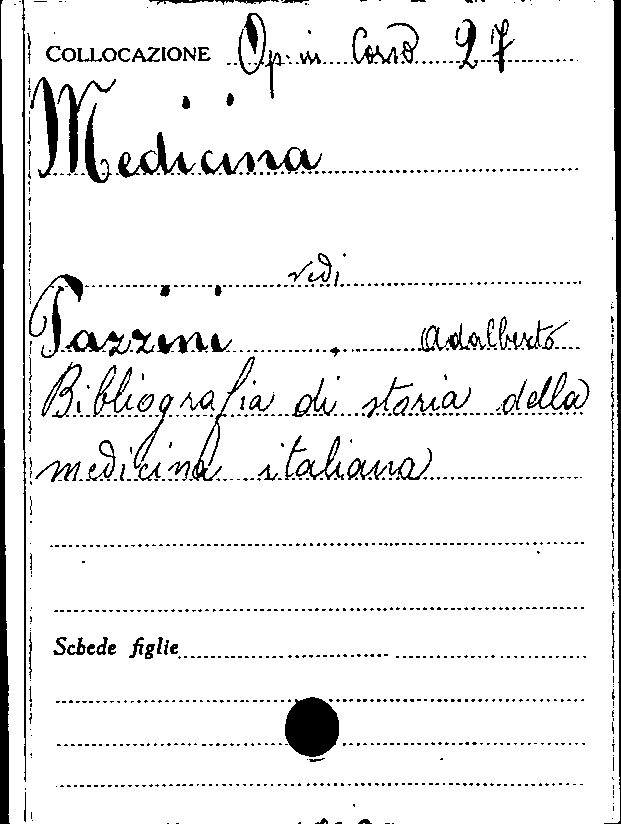 COLLOCAZIONE Op. in Corso 27
Medicina
vedi
Pazzini, Adalberto
Bibliografia di storia della
medicina italiana
Schede figlie